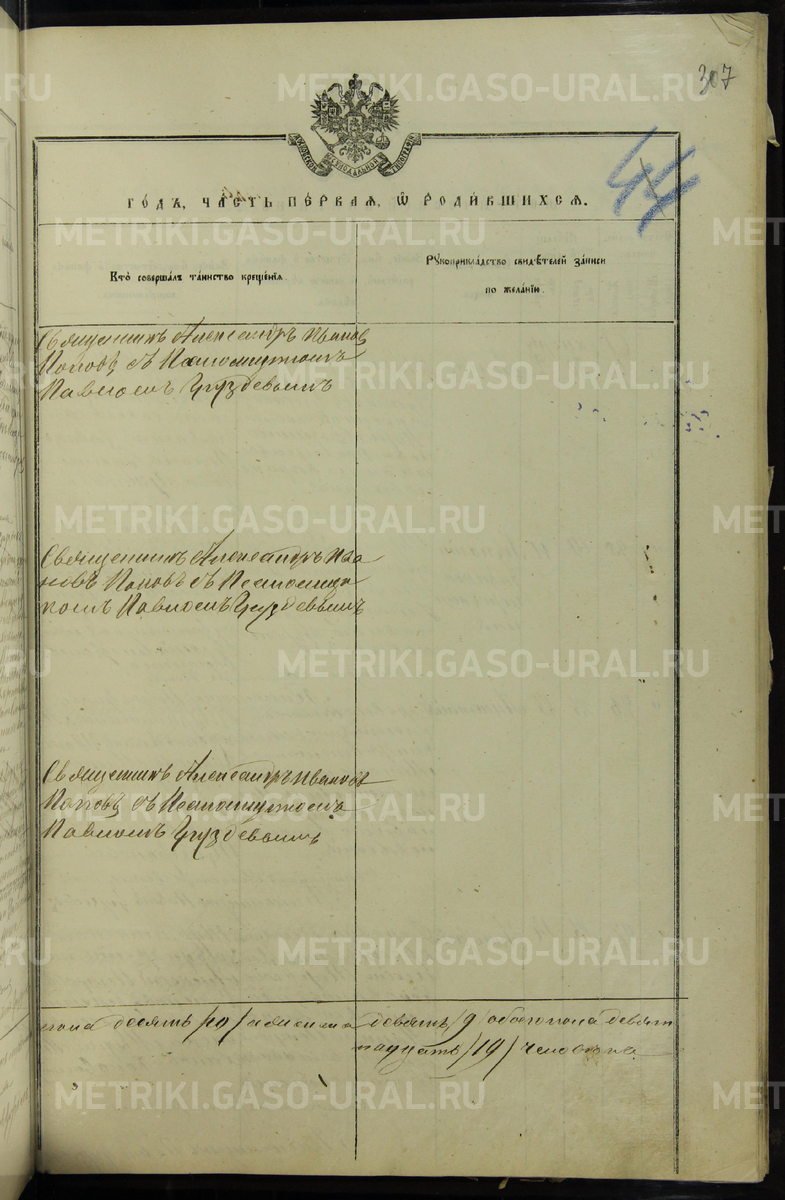 307
44
годъ, часть первая, ѡ родившихся.
Кто совершалъ таинство крещенія
Рукоприкладство свидѣтелей записи
по желанію.
Священникъ Александръ Иванов
Поповъ съ Псаломщикомъ
Павломъ Груздевымъ
Священникъ Александръ Ива
новъ Поповъ съ Псаломщи
комъ Павломъ Груздевымъ
Священникъ Александръ Ивановъ
Поповъ съ Псаломщикомъ
Павломъ Груздевымъ
пола десять /10/ женска девять /9/ обоего пола девят
надцать /19/ человѣка
METRIKI.GASO-URAL.RU